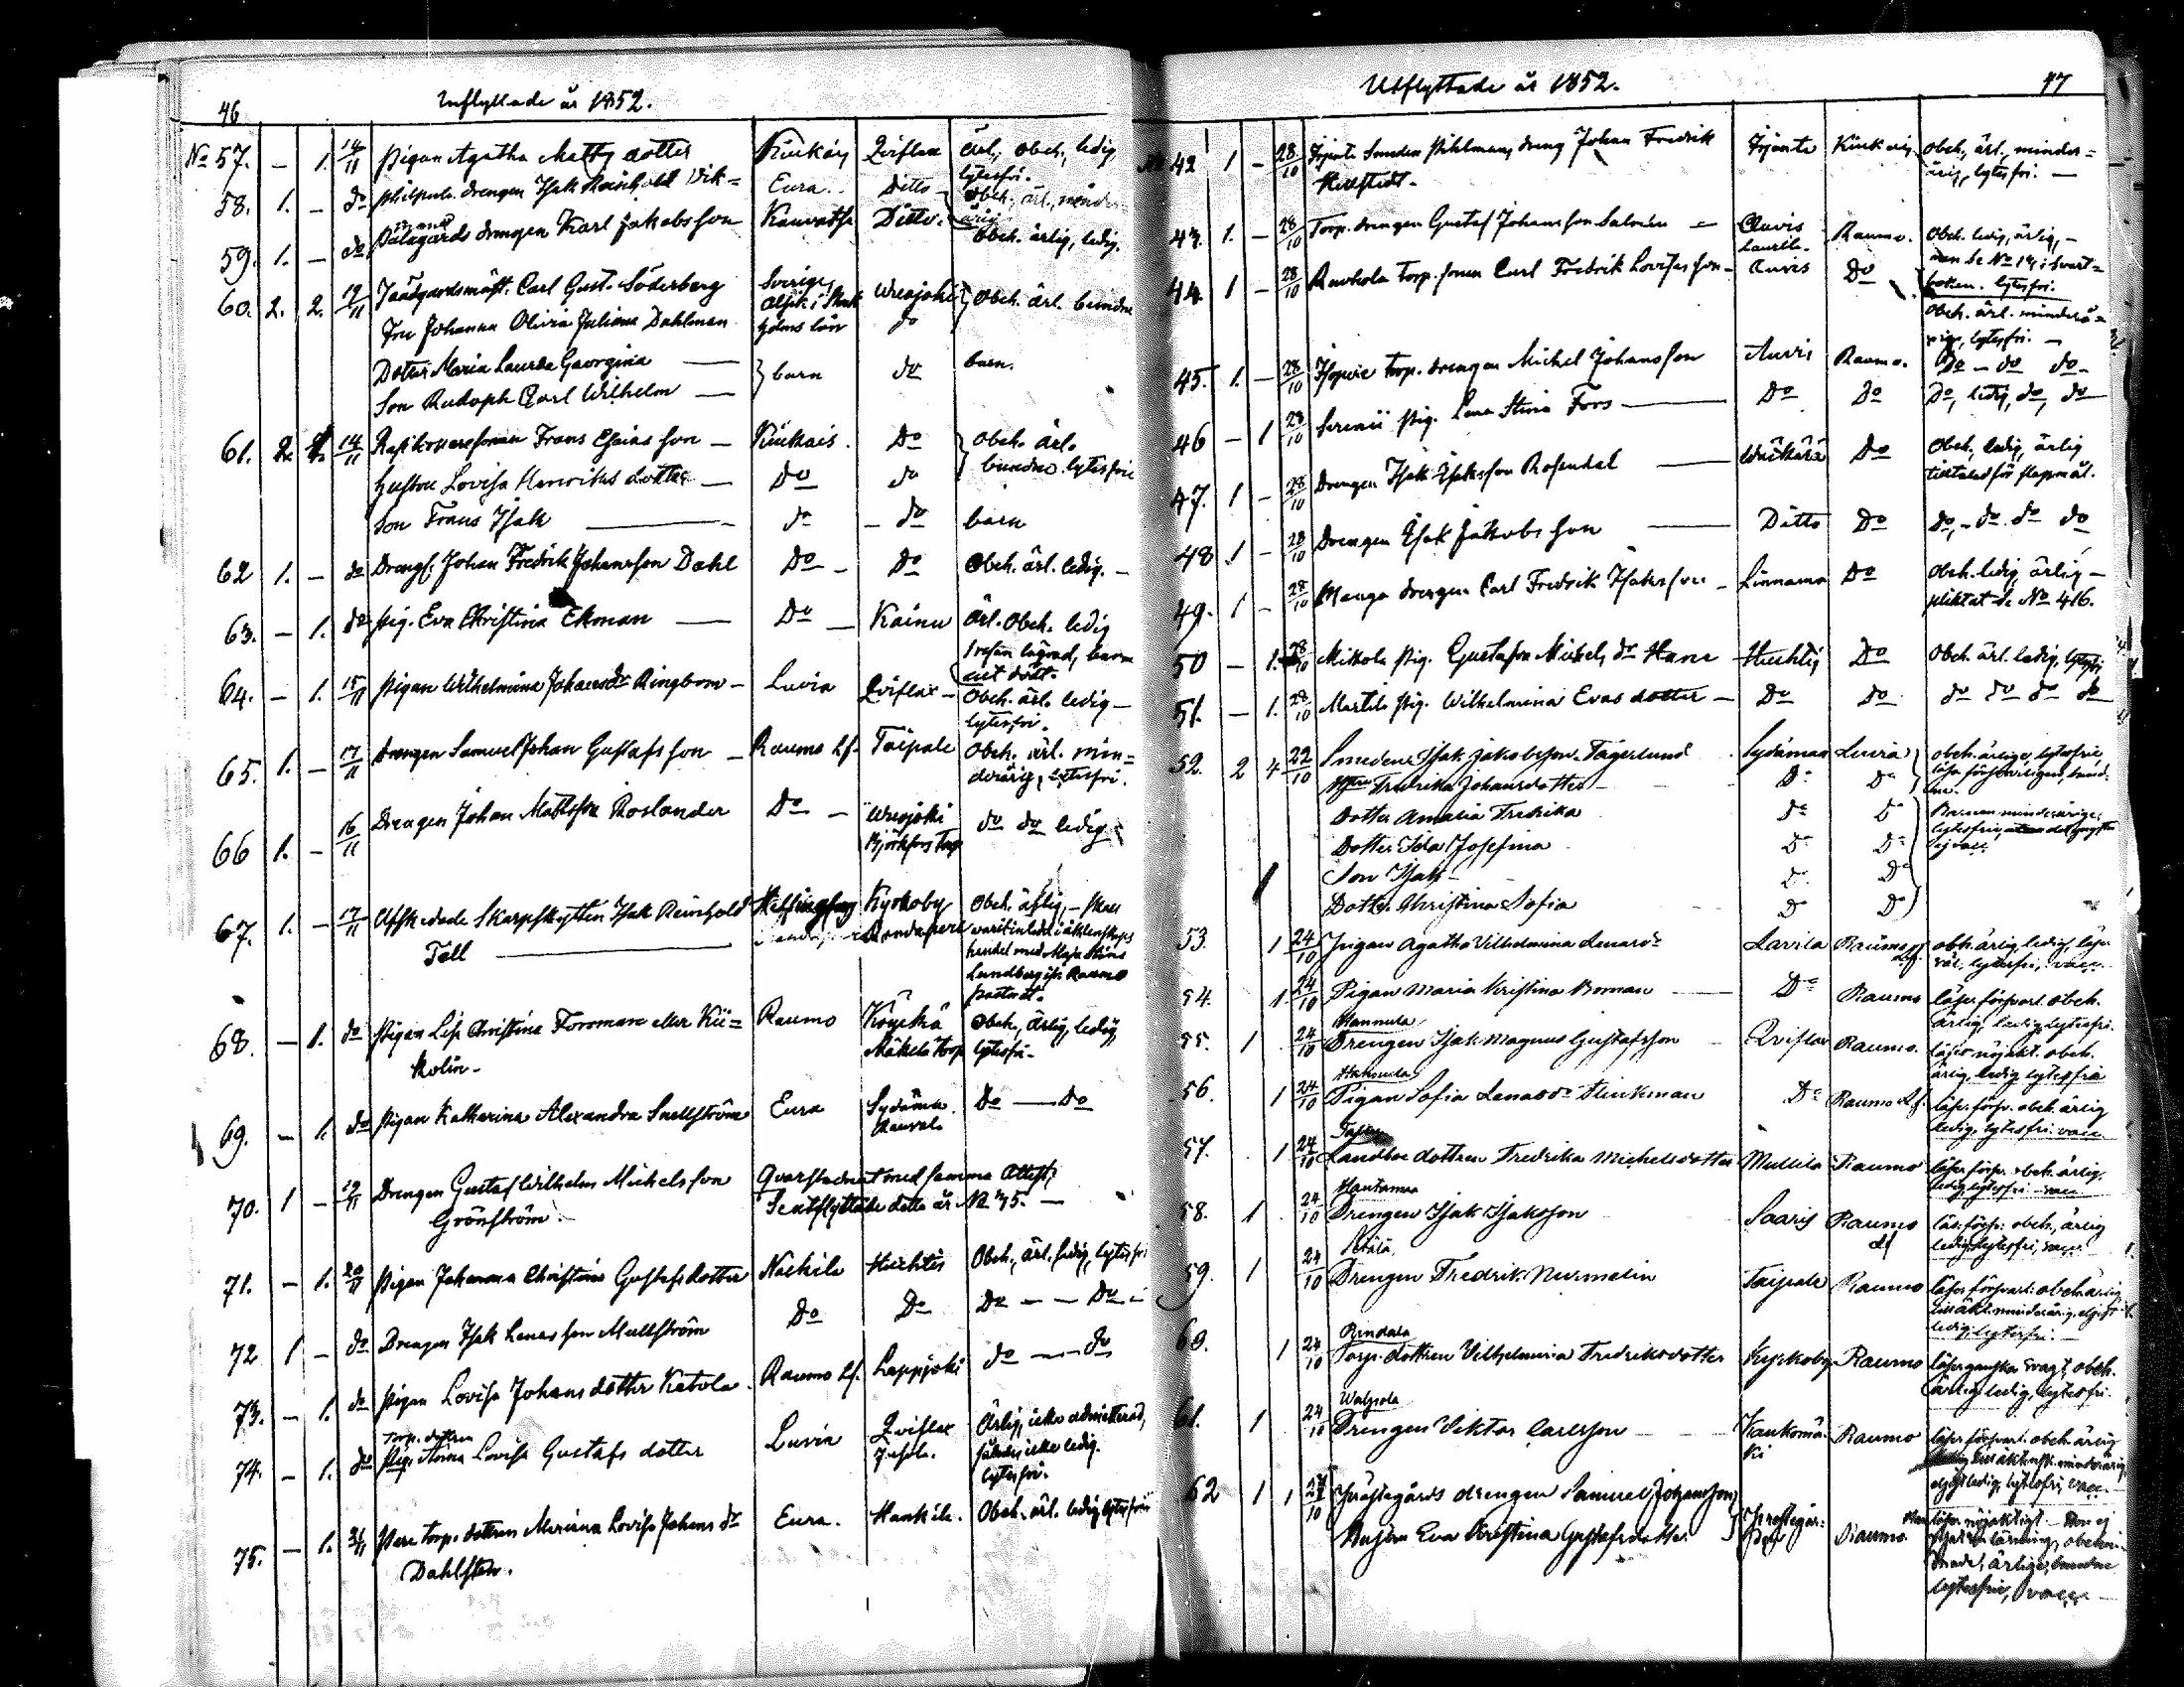 46
Inflyttade år 1852.
No 57. – 1. 14/11 Pigan Agatha Matts dotter Kiukais Qviflax Ärl., obeh., ledig
lytesfri.
58. 1. – do drengen Isak Reinhold Wik= Eura. Ditto Obeh. ärl., minder-
årig
59. 1. – do Pälagårds drengen Karl Jakobsson Kauvatsa Ditto. Obeh. ärlig, ledig.
60. 2. 2. 19/11 Trädgårdsmäst. Carl Gust. Söderberg Sverige, Wuojoki Obeh. ärl. bundne
Fru Johanna Olivia Juliana Dahlman holms län do
Dotter Maria Laurda Georgina — barn do barn.
Son Rudoph Carl Wilhelm —
61. 2. 14/11 Frans Esaias son – Kiukais. Do Obeh. ärl.
Hustru Lovisa Henriks dotter – Do do bundne lytesfrie
Son Frans Isak — do – do barn
62 1. – do Drengs. Johan Fredrik Johansson Dahl Do – Do Obeh. ärl. ledig. –
63. – 1. do Pig. Eva Christina Ekman — Do – Kainu Ärl. obeh. ledig
64. – 1. 15/11 Pigan Wilhelmina Johansdr Ringbom – Luvia Qviflax – Obeh. ärl. ledig –
lytesfri.
65. 1. – 17/11 Drengen Samuel Johan Gustafsson – Raumo Lf. Taipale Obeh. ärl. min=
derårig, lytesfri.
66 1. – 16/11 Drengen Johan Mattsson Roslander Do – Wuojoki do do ledig
Björkfors torp
67. 1. – 17/11 Afskedade Skarpskytten Isak Reinhold Helsingfors Kyrkoby Obeh. ärlig, – skall
Tell — varit inledd i äktenskaps
handel med Maja Stina
Lundberg ifr. Raumo
pastorat.
68. – 1. do Pigan Lisa Christina Forsman eller Kii= Raumo Obeh., ärlig, ledig
kolin – Mäkelä torp lytesfri –
69. – 1. do Pigan Katharina Alexandra Snellström Eura Sydänma Do — Do
70. 1 – 19/11 Drengen Gustaf Wilhelm Michelsson Qvarstadnat med samma attest,
Grönström. Se utflyttade detta år No 75. –
71. – 1. 20/11 Pigan Johanna Christina Gustafsdotter Nackila Huchtis Obeh., ärl. ledig, lytesfri
72 1 – do Drengen Isak Lenasson Mullström Do Do Do – – Do –
73. – 1. do Pigan Lovisa Johansdotter Ketola. Raumo Lf. Lappjoki do — do
74. – 1. do Torp. dottren
Pig. Anna Lovisa Gustafs dotter Luvia Qviflax Ärlig, icke admitterad,
lytesfri.
75. – 1. Pere torp. dottren Mariana Lovisa Johans dr Eura. Hankila. Obeh. ärl. ledig lytesfri
Dahlsten.
Utflyttade år 1852.
47
No 42 1 – 28/10 Irjante Smeden Pihlmans dreng Johan Fredrik Irjante Kiukais Obeh., ärl., minder=
Hellstedt – årig, lytesfri. —
43. 1. – 28/10 Torp. drengen Gustaf Johansson Salmén – Auvis Raumo. Obeh. ledig, ärlig, –
44. 1 – 28/10 Rauhola torp. sonen Carl Fredrik Lovisasson – Auvis Do
Obeh. ärl. minderå=
rig, lytesfri. –
45. 1. – 28/10 torp. drengen Michel Johansson Auvis Raumo. Do – do do –
46 – 1 28/10 Pig. Lena Stina Fors — Do Do Do, ledig, do, do
47. 1 – 28/10 Drengen Isak Isaksson Rosendal — Do Obeh., ledig, ärlig
tilltalad för slagsmål.
48 1 – 28/10 Drengen Isak Jakobsson — Ditto Do do, – do do do
49. 1 – 28/10 Mauga drengen Carl Fredrik Isaksson – Linnamaa Do Obeh. ledig, ärlig –
pliktat se No 416.
50 – 1. 28/10 Mikola Pig. Gustafva Mickels dr Hane Huchtis Do Obeh. ärl. ledig, lytesfri
51. – 1. 28/10 Martila Pig. Wilhelmina Evas dotter – Do Do do do do do
52. 2 4 22/10 Smeden Isak Jakobsson Tägerlund Sydänmaa Luvia obeh. ärlige, lytesfrie,
Hustru Fredrika Johansdotter – Do Do
Dotter Amalia Fredrika Do Do Barnen minderårige,
Dotter Ida Josefina Do Do
Son Isak – Do Do
Dotter Christina Sofia Do Do
53. 1 24/10 Pigan Agatha Vilhelmina Lenasdr Lavila Raumo lf. obeh. ärlig, ledig, läser
väl, lytesfri, vacc.
54. 1 24/10 Pigan Maria Kristina Boman — Do Raumo läser försvarl. obeh.
ärlig, ledig, lytesfri.
Hannula
55. 1 24/10 Drengen Isak Magnus Gustafsson – Qviflax Raumo. läser nöjakt. obeh.
ärlig, ledig lytesfri
56. 1 24/10 Pigan Sofia Lenasdr Flinkman Do Raumo Lf. läser försv. obeh. ärlig
ledig, lytesfri. vacc.
57. 1 24/10 Landboe dottren Fredrika Michelsdotter Mullila Raumo läser försv. obeh. ärlig,
ledig lytesfri – vacc
Hautamaa
58. 1 24/10 Drengen Isak Isaksson Saaris Raumo lf läs. försv. obeh., ärlig
ledig, lytesfri, vacc.
59. 1 24/10 Drengen Fredrik Nurmelin Taipale Raumo läser försvarl. obeh. ärlig
ledig, lytesfri. –
Rindala
60. 1 24/10 Torp. dottren Vilhelmina Fredriksdotter Kyrkoby Raumo läser ganska svagt, obeh.
ärlig, ledig, lytesfri.
61. 1 24/10 Drengen Viktor Carlsson – Kaukomä-
ki Raumo läser försvarl. obeh. ärlig
62 1 1 24/10 Prästegårds drengen Samuel Johansson
Hustru Eva Kristina Gustafsdotter Raumo. läser nöjaktigt –
lytesfrie, vacc. –